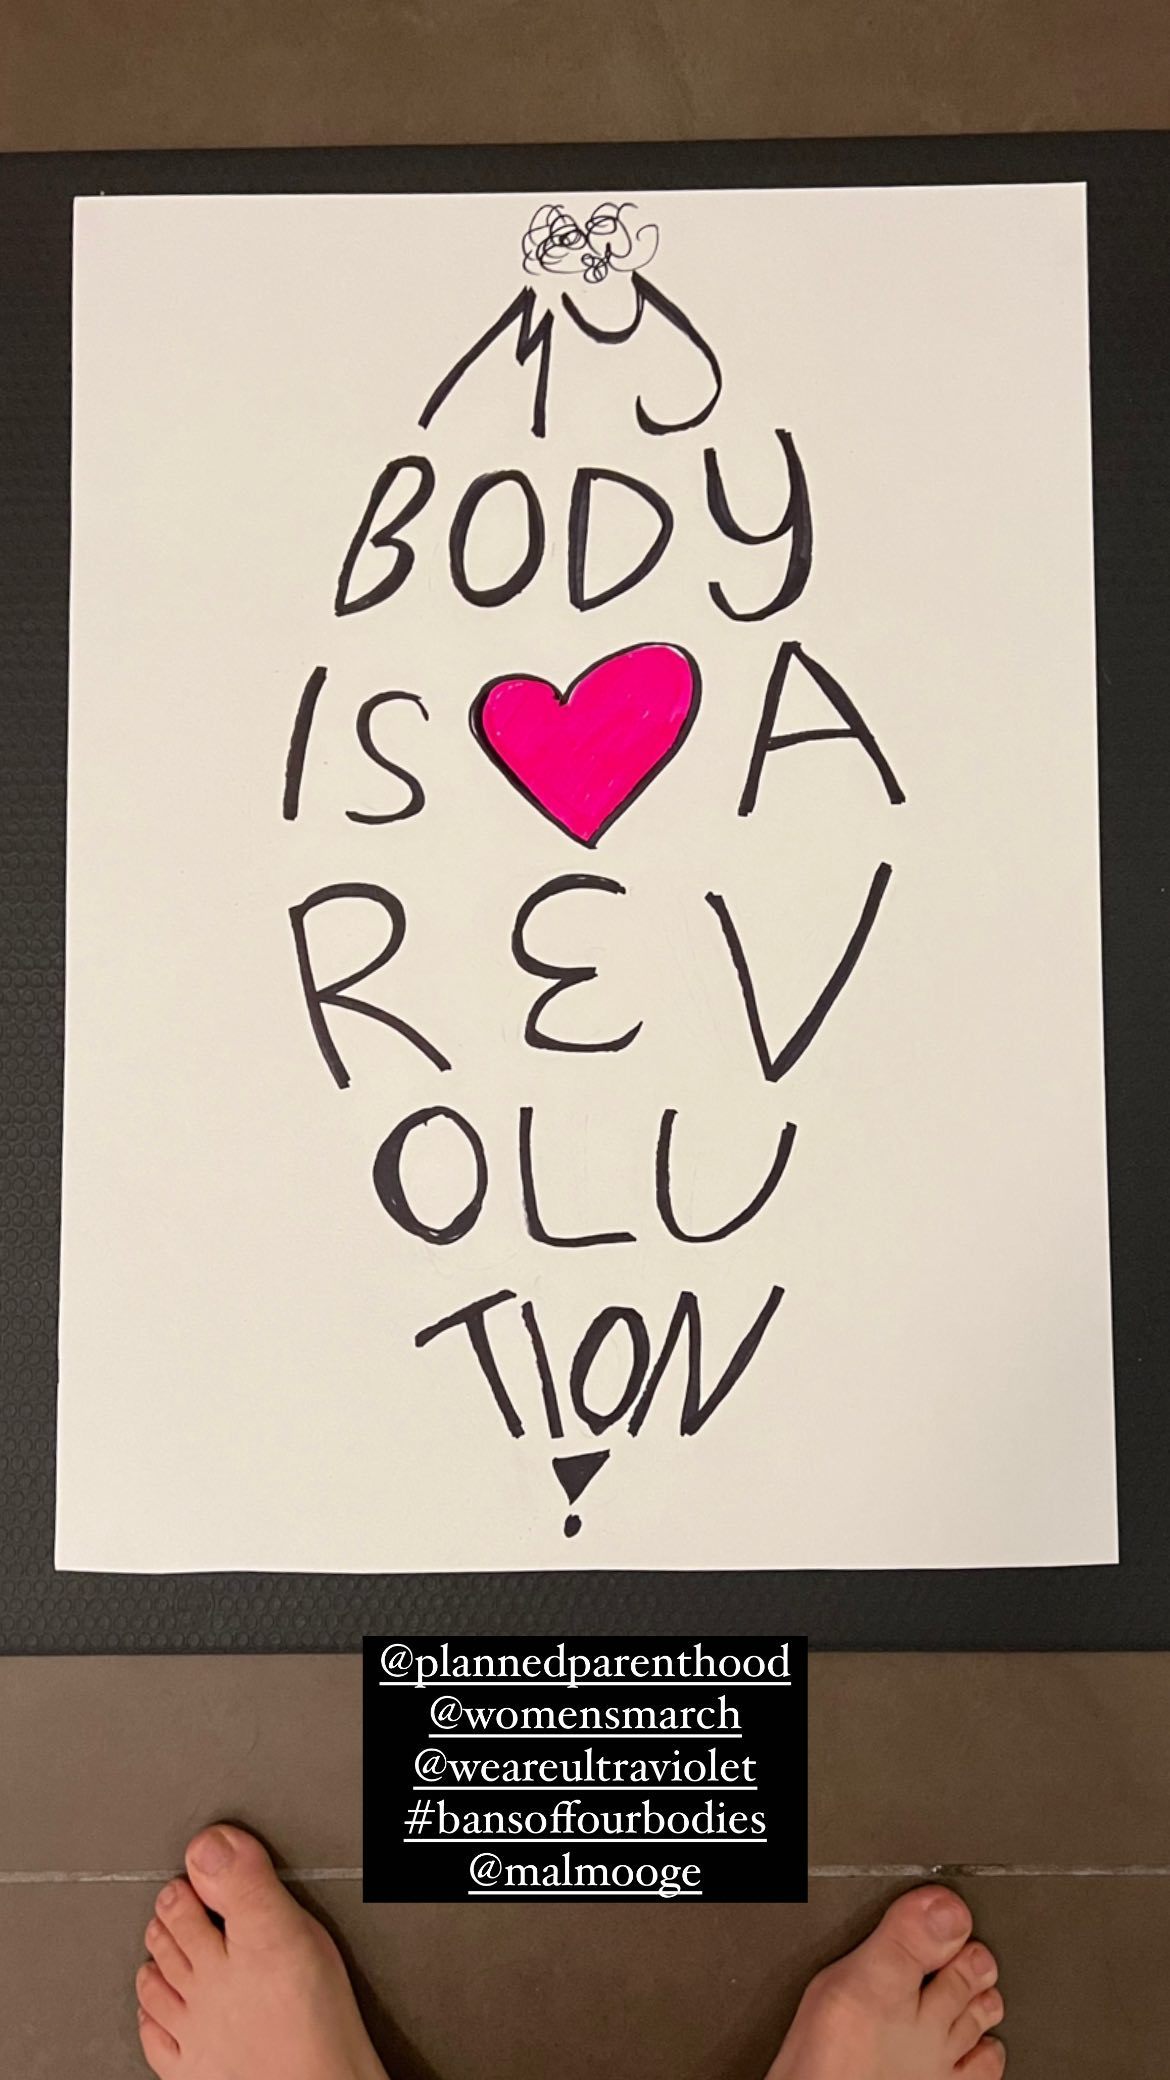 MY
BODY
IS A
REV
OLU
TION
!
@plannedparenthood
@womensmarch
@weareultraviolet
#bansoffourbodies
@malmooge